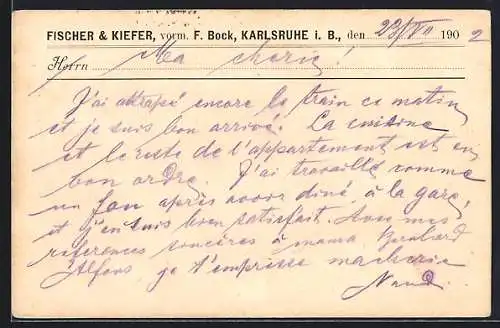 FISCHER & KIEFER, vorm. F. Bock, KARLSRUHE i. B., den 23/VII 1902
Herrn Ma cherie!
J'ai attrapé encore le train ce matin
et je suis bon arrivé. La cuisine
et le reste de l'appartement est en
bon ordre. J'ai travaillé comme
un fou après avoir diné à la gare,
et j'en suis bien satisfait. Avec mes
references sincères à mama, Bernhard
Alfons je t'empresse ma cherie